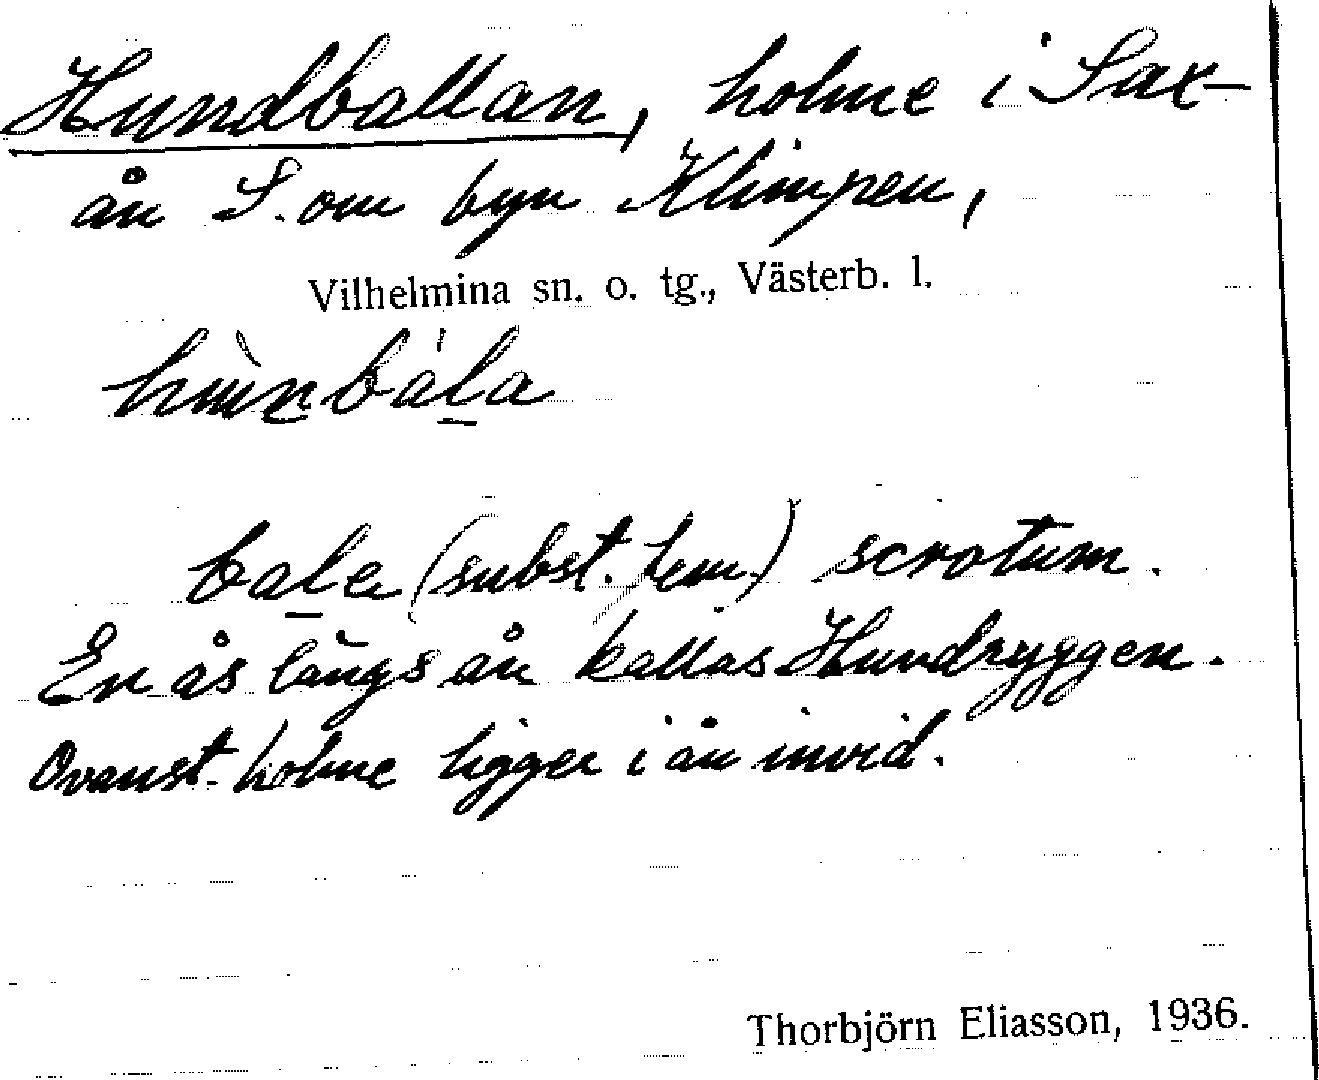 Hundballan, holme i Sax-
ån S. om byn Klimpen,
Vilhelmina sn. o. tg., Västerb. l.
hùnbála
bala (subst. fem.) scrotum.
En ås längs ån kallas Hundryggen.
Ovanst. holme ligger i ån invid.
Thorbjörn Eliasson, 1936.